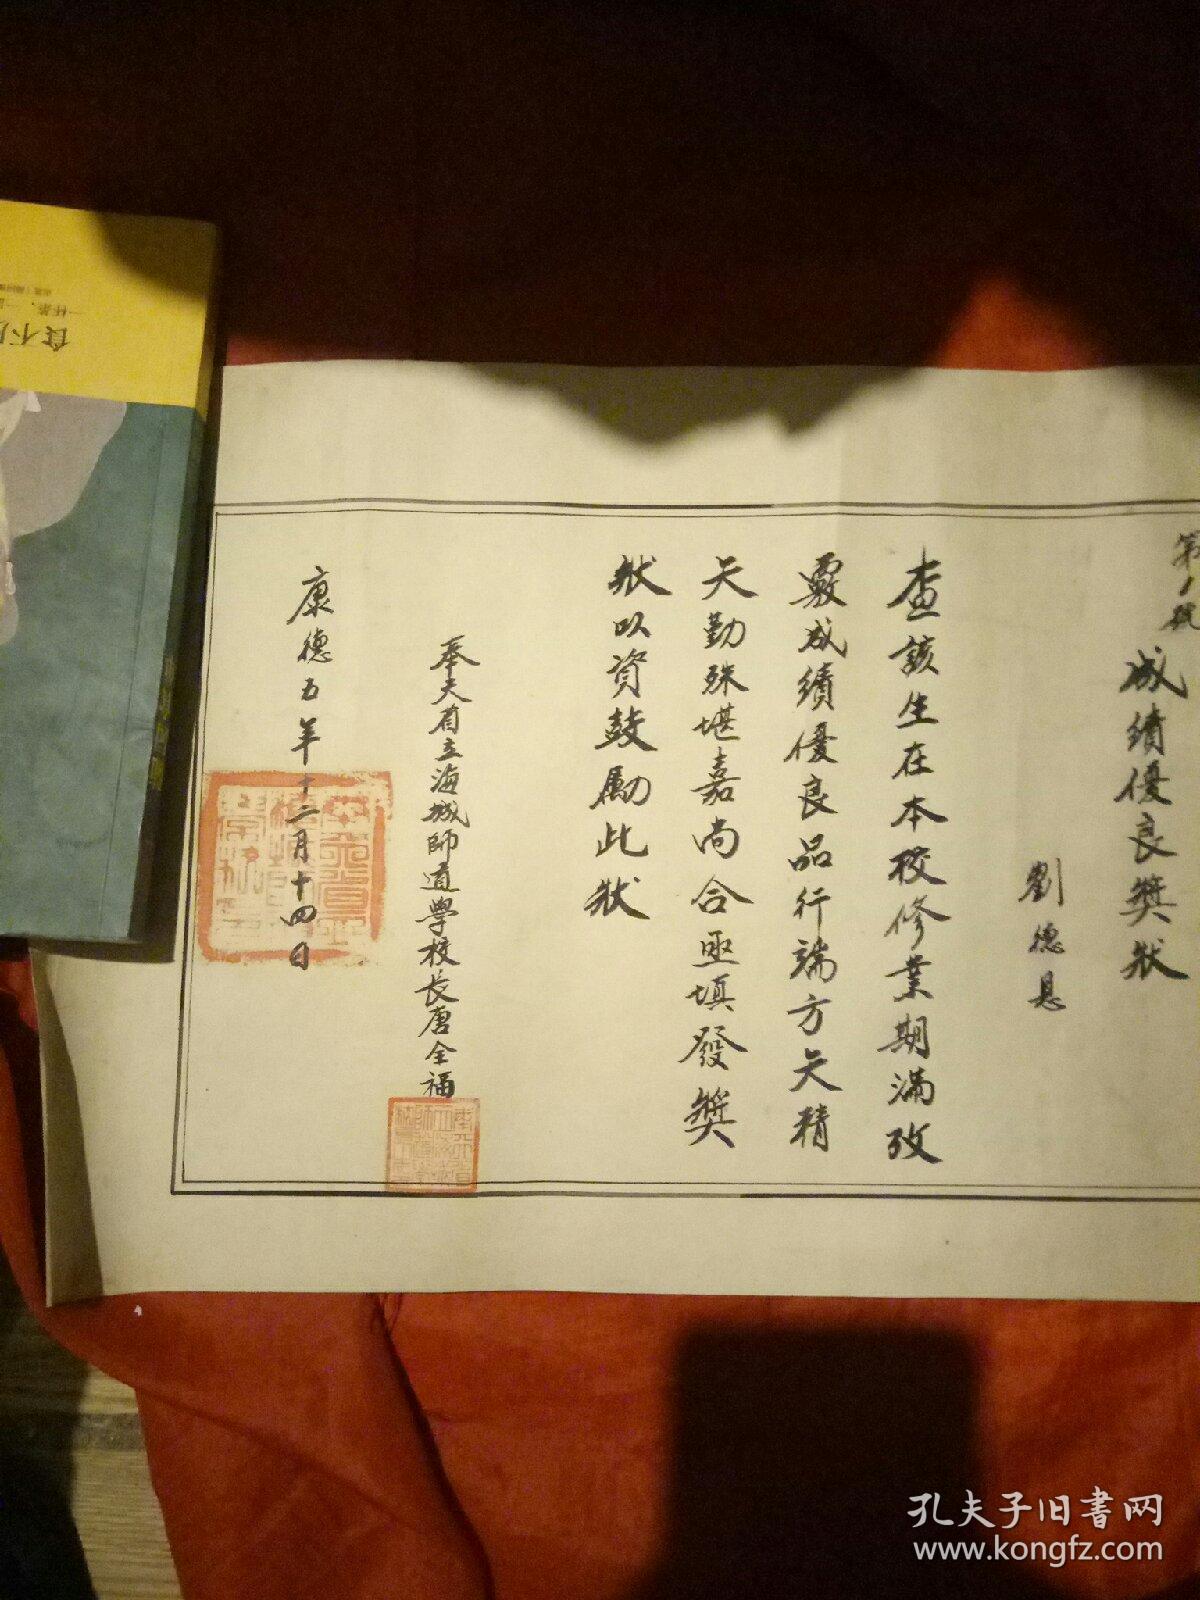 第1號
成績優良獎狀
劉德恳
查該生在本校修業期滿攷
覈成績優良品行端方天精
天勤殊堪嘉尚合亟填發獎
狀以資鼓勵此狀
奉天省立海城師道學校長唐全福
康德五年十二月十四日
食不
一杯茶、一
孔夫子旧书网
www.kongfz.com